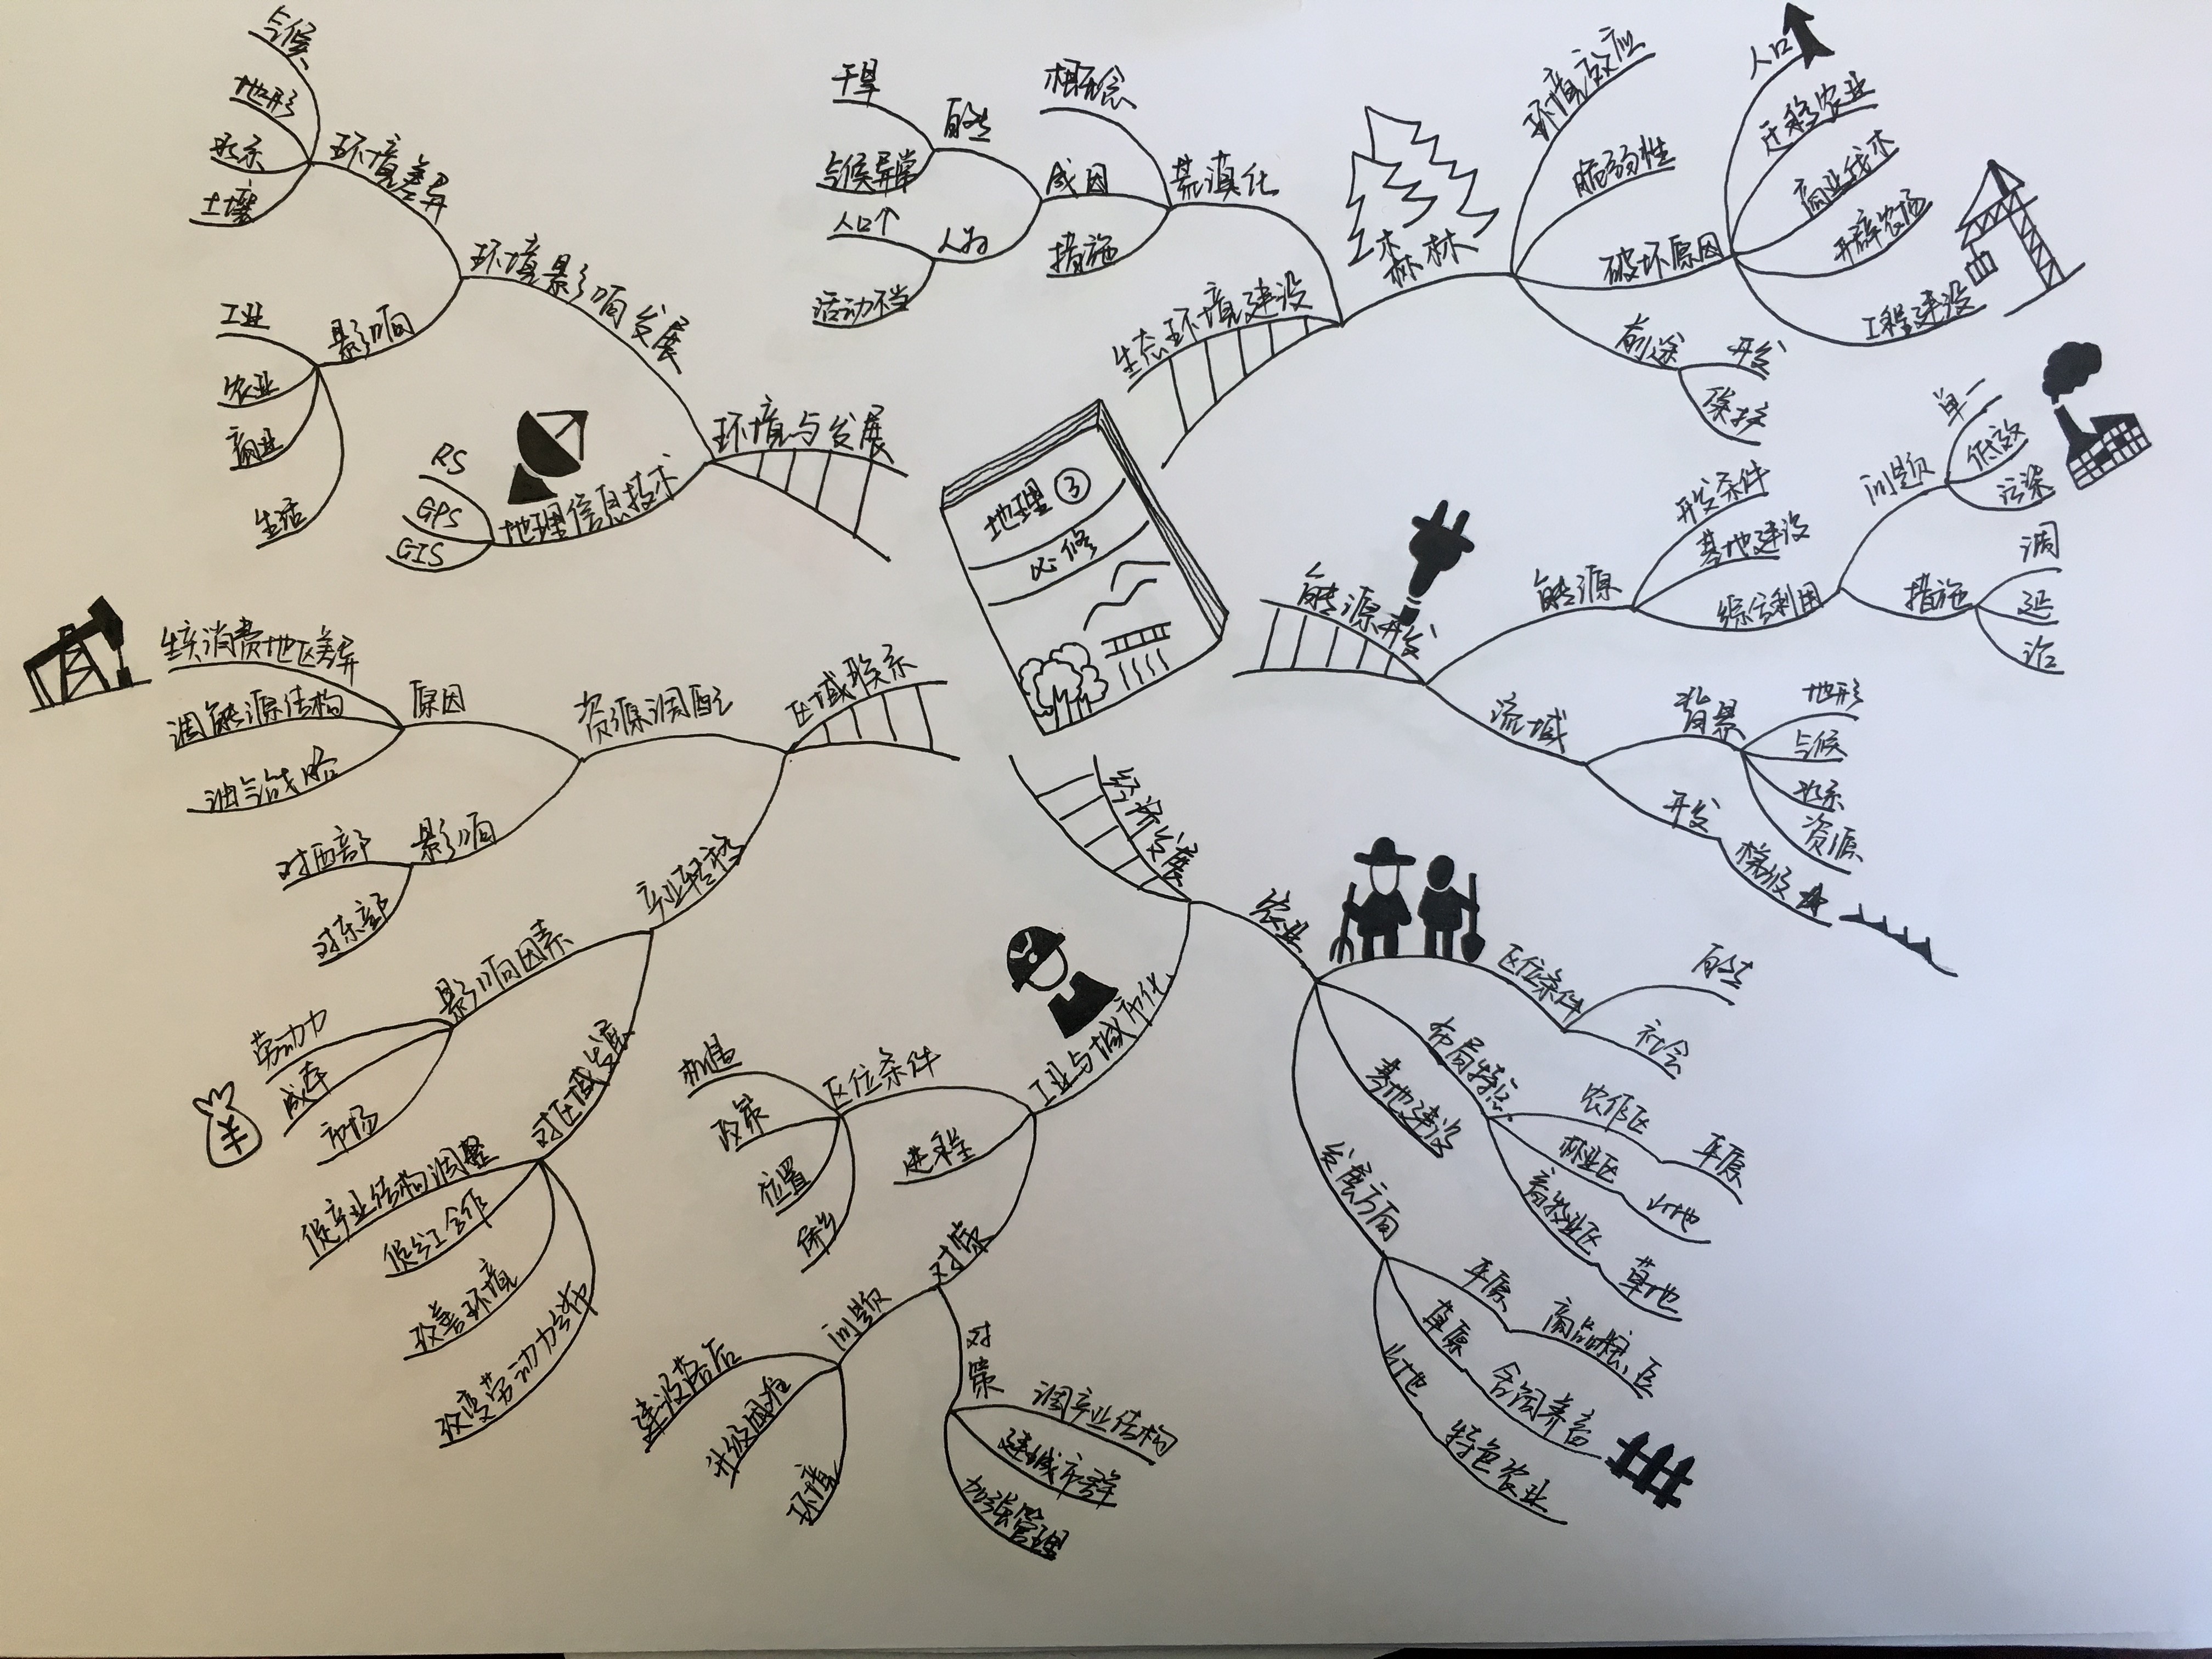 地理③
必修
环境与发展
环境影响发展
环境差异
气候
地形
水系
土壤
影响
工业
农业
商业
生活
地理信息技术
RS
GPS
GIS
生态环境建设
荒漠化
概念
成因
自然
干旱
气候异常
人为
人口↑
活动不当
措施
森林
环境效应
脆弱性
破坏原因
人口
迁移农业
商业伐木
开辟农场
工程建设
前途
开发
保护
能源开发
能源
开发条件
基地建设
综合利用
问题
单一
低效
污染
措施
调
延
治
流域
背景
地形
气候
水系
资源
开发
梯级
经济发展
农业
区位条件
自然
社会
布局特点
农作区
平原
林业区
山地
畜牧业区
草地
基地建设
发展方向
平原
商品粮区
草原
舍饲养畜
山地
特色农业
工业与城市化
区位条件
政策
位置
进程
对策
问题
建设落后
升级困难
环境
对策
调产业结构
建城市群
加强管理
区域联系
资源调配
原因
生产消费地区差异
调能源结构
油气战略
影响
对西部
对东部
产业转移
影响因素
劳动力
成本
市场
对区域发展
促产业结构调整
促分工合作
改善环境
改变劳动力分布